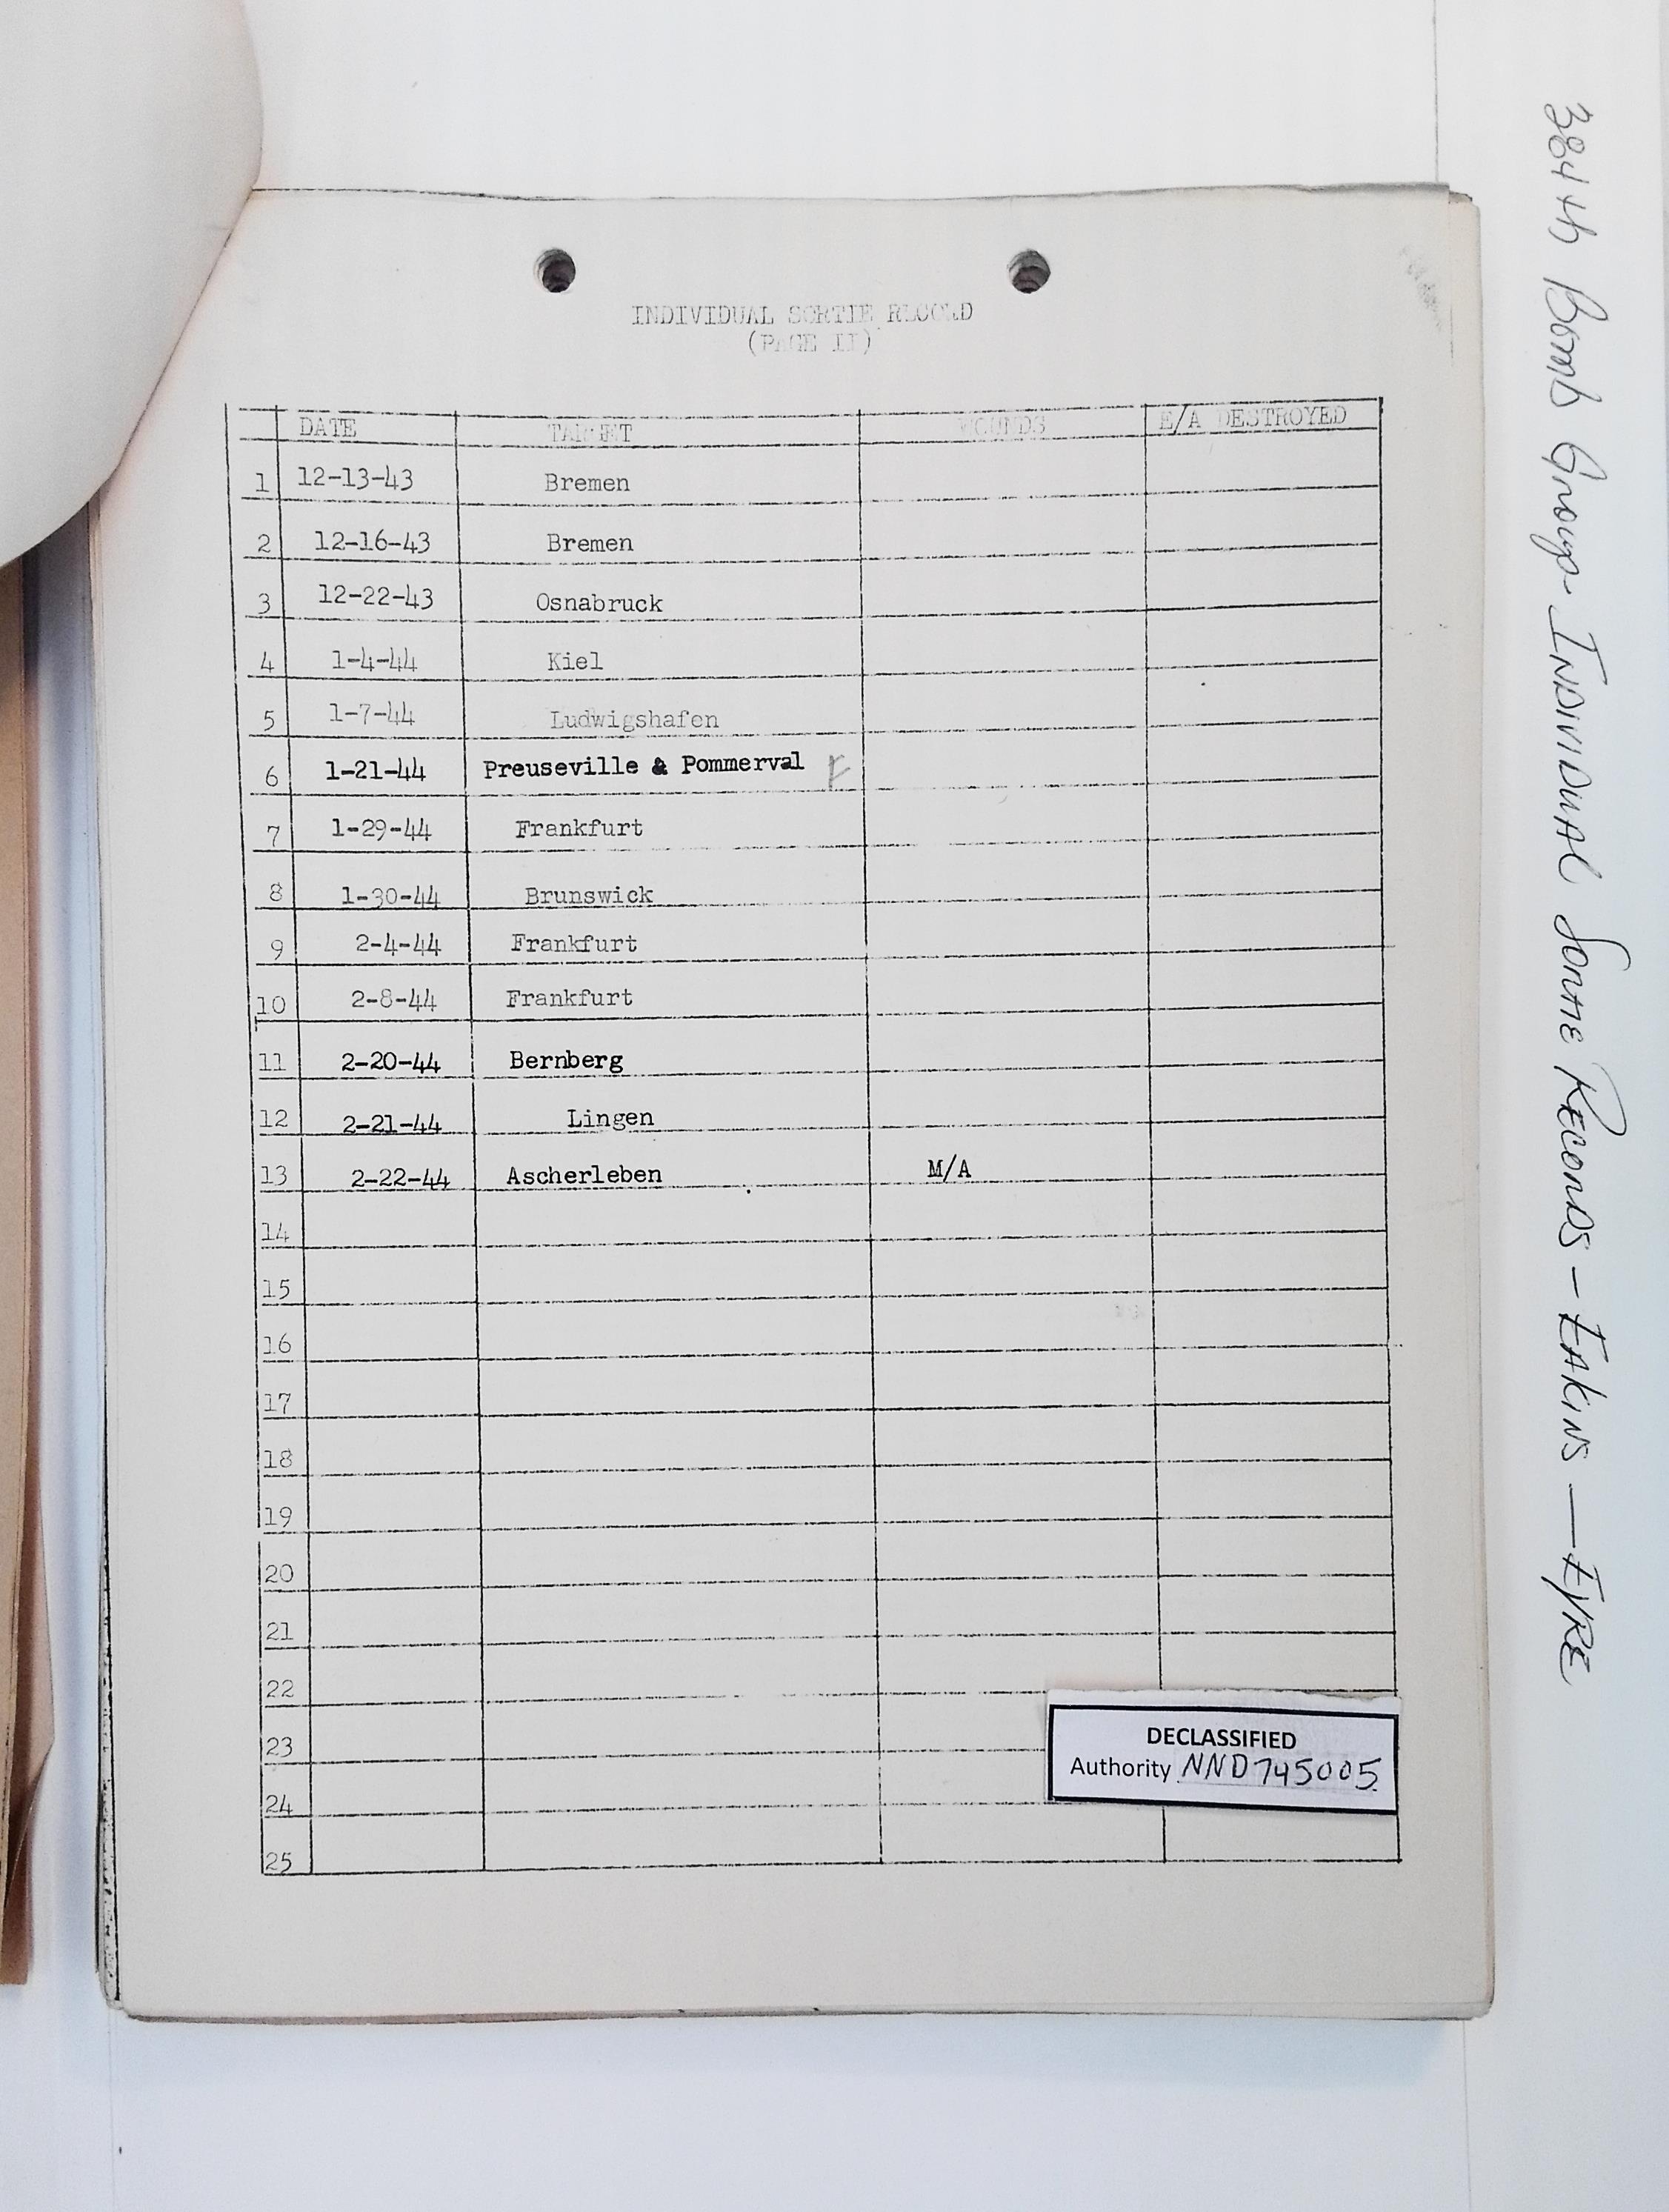 INDIVIDUAL SORTIE RECORD
(PAGE II)
DATE TARGET WOUNDS E/A DESTROYED
1 12-13-43 Bremen
2 12-16-43 Bremen
3 12-22-43 Osnabruck
4 1-4-44 Kiel
5 1-7-44 Ludwigshafen
6 1-21-44 Preuseville & Pommerval F
7 1-29-44 Frankfurt
8 1-30-44 Brunswick
9 2-4-44 Frankfurt
10 2-8-44 Frankfurt
11 2-20-44 Bernberg
12 2-21-44 Lingen
13 2-22-44 Ascherleben M/A
14
15
16
17
18
19
20
21
22
23
24
25
DECLASSIFIED
Authority NND745005
384th Bomb Group-Individual Sortie Records-Eakins-Eyre